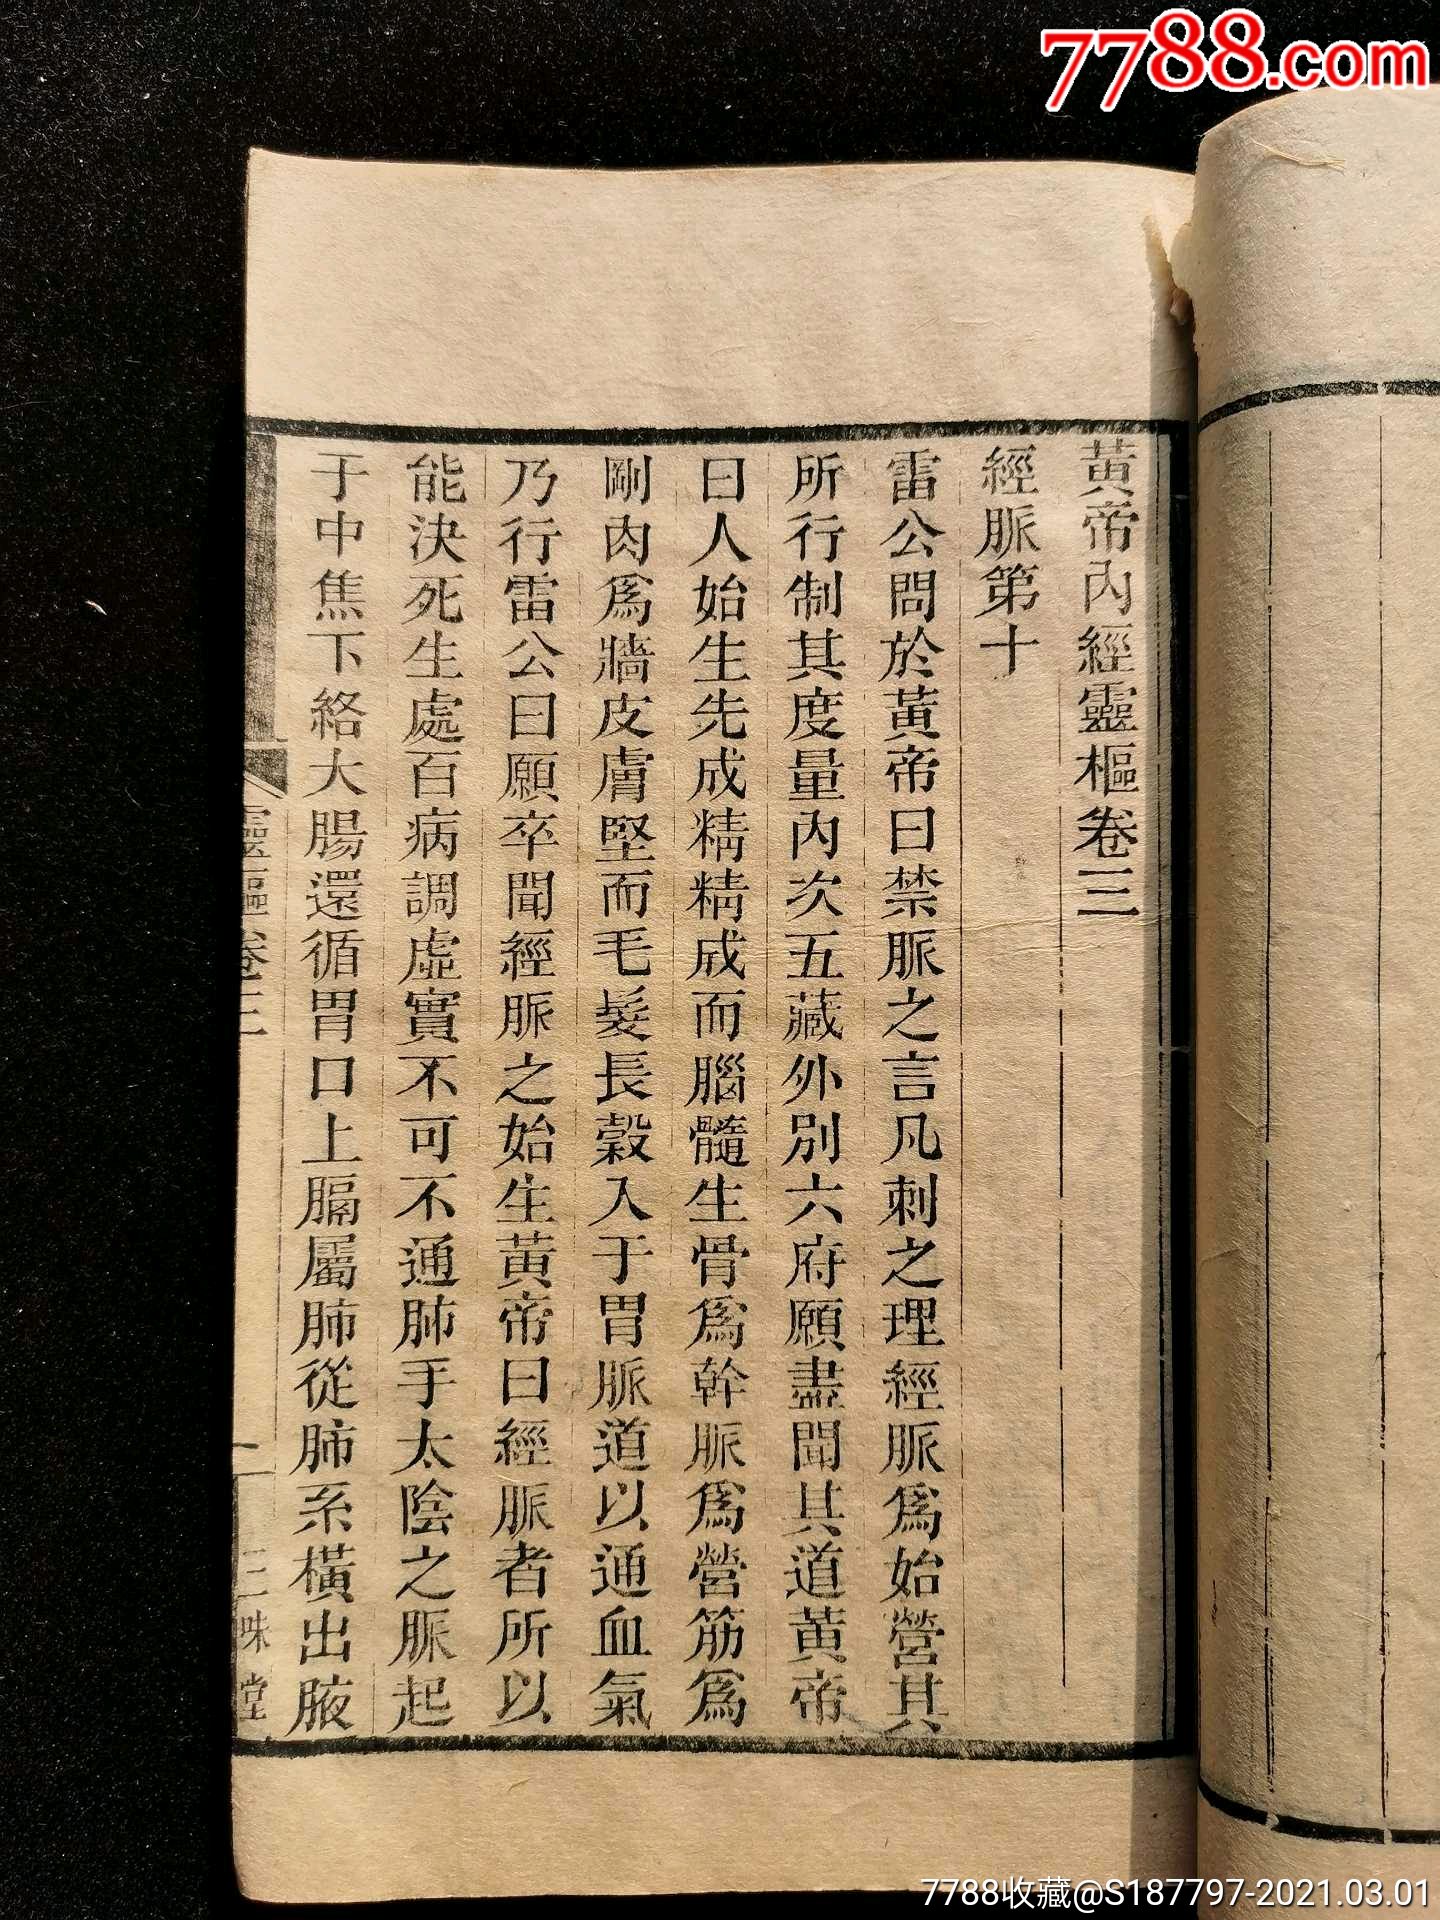 7788.com
黃帝內經靈樞卷三
經脈第十
雷公問於黃帝曰禁脈之言凡刺之理經脈爲始營其
所行制其度量內次五藏外別六府願盡聞其道黃帝
曰人始生先成精精成而腦髓生骨爲幹脈爲營筋爲
剛肉爲牆皮膚堅而毛髮長穀入于胃脈道以通血氣
乃行雷公曰願卒聞經脈之始生黃帝曰經脈者所以
能決死生處百病調虛實不可不通肺手太陰之脈起
于中焦下絡大腸還循胃口上膈屬肺從肺系橫出腋
靈樞卷三
一
三味堂
7788收藏@S187797-2021.03.01